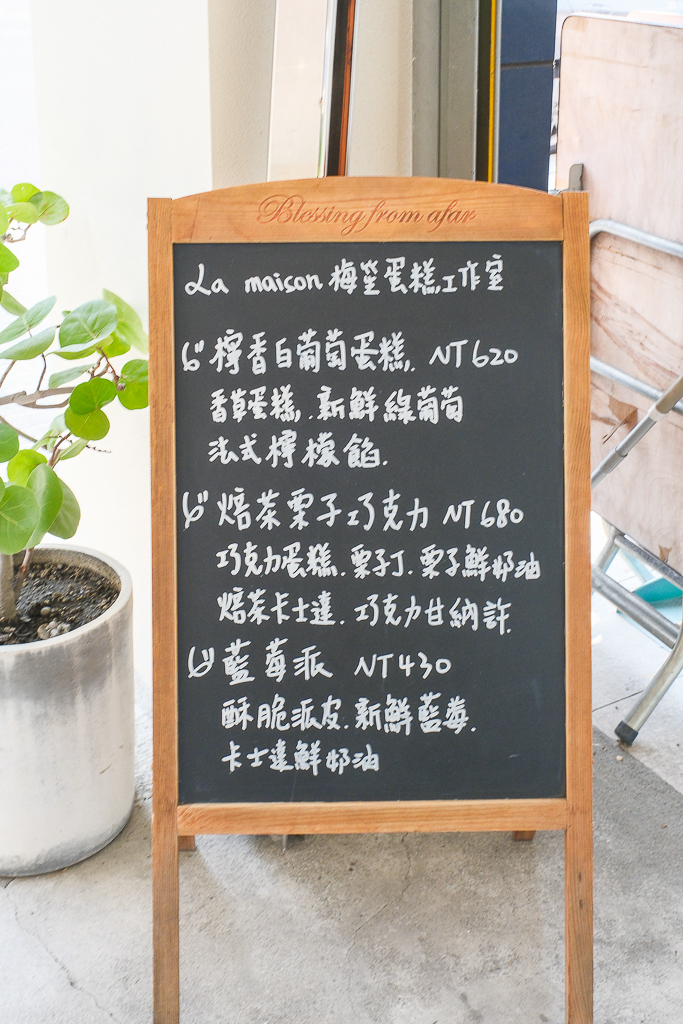 Blessing from afar
La maison 梅笙蛋糕工作室
6" 檸香白葡萄蛋糕. NT620
香草蛋糕. 新鮮綠葡萄
法式檸檬餡.
6" 焙茶栗子巧克力 NT680
巧克力蛋糕. 栗子丁. 栗子鮮奶油
焙茶卡士達. 巧克力甘納許.
6" 藍莓派 NT430
酥脆派皮. 新鮮藍莓.
卡士達鮮奶油